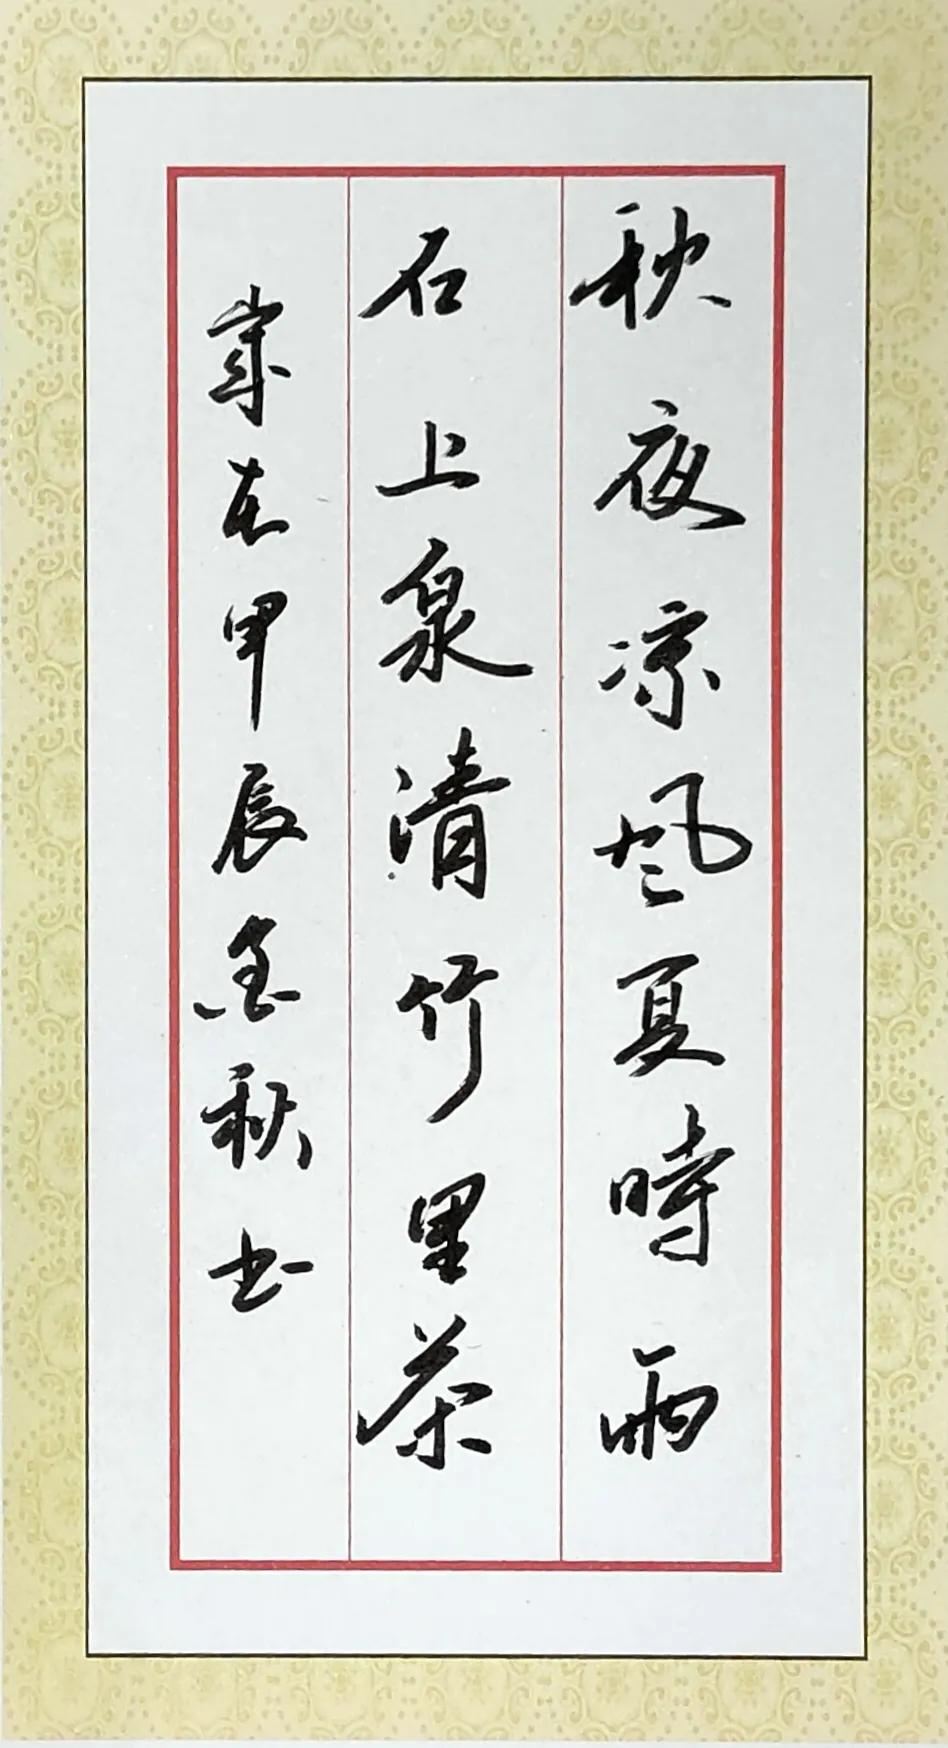 秋夜凉风夏時雨
石上泉清竹里茶
岁在甲辰金秋书